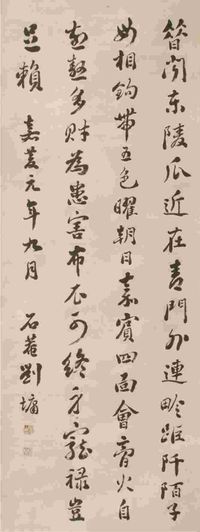 昔聞東陵瓜近在青門外連畛距阡陌子
母相鉤帶五色曜朝日嘉賓四面會膏火自
煎熬多財為患害布衣可終身寵祿豈
足賴 嘉慶元年九月 石菴劉墉